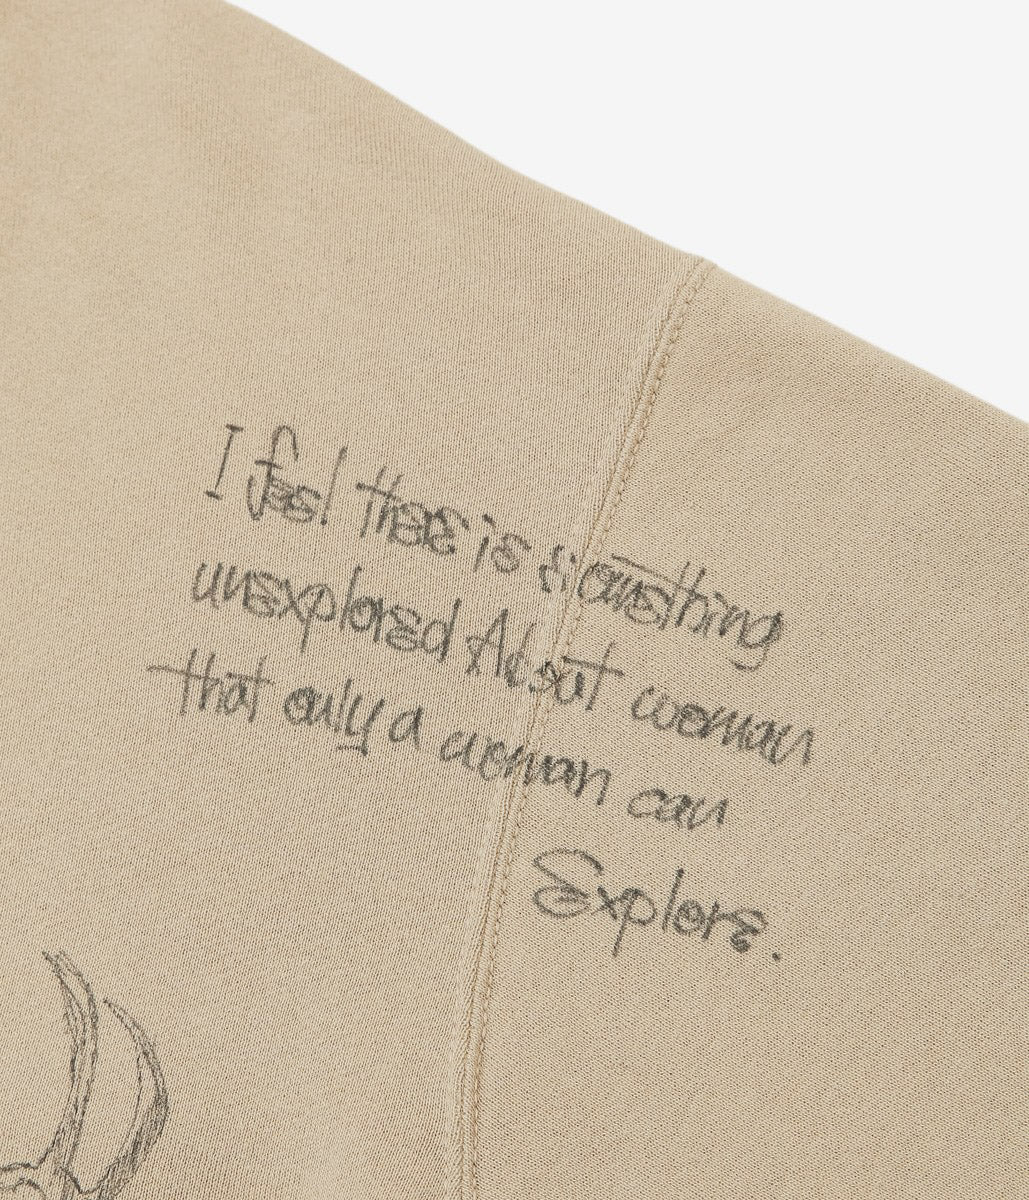 I feel there is something
unexplored About woman
that only a woman can
Explore.